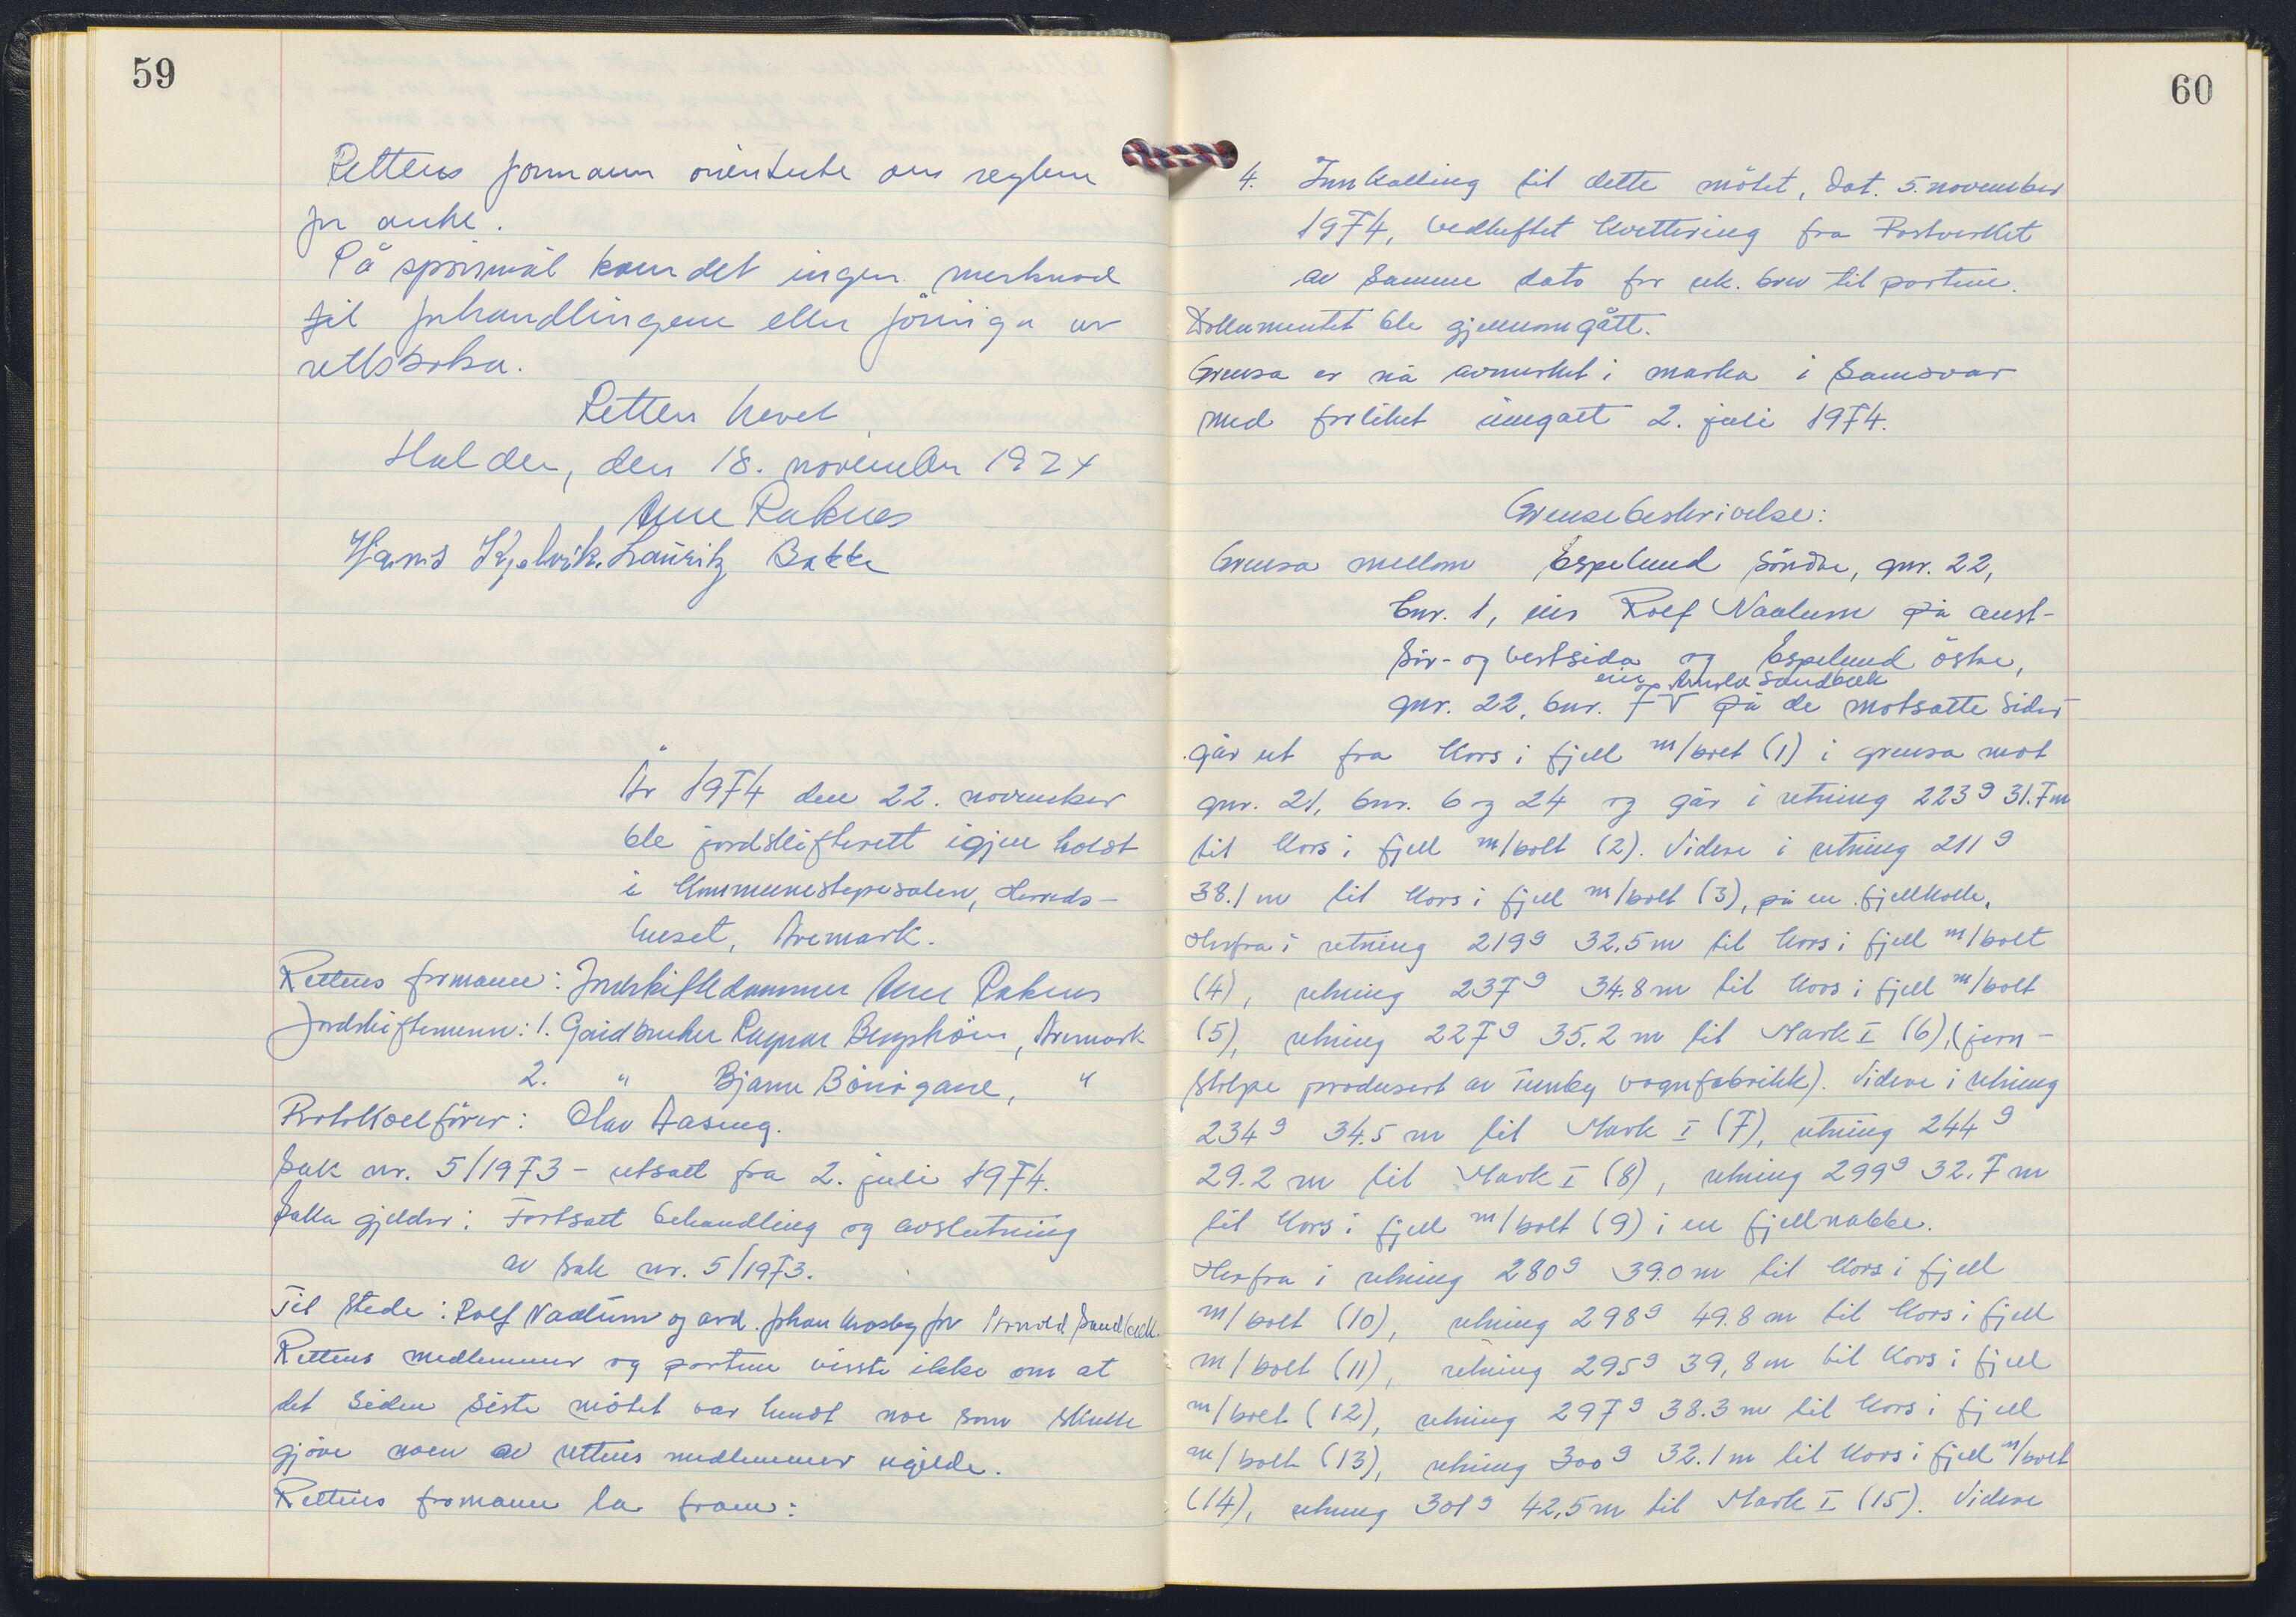 59
Rettens formann orienterte om reglene
for anke.
På spørsmål kom det ingen merknad
til forhandlingene eller föringa av
rettsboka.
Retten hevet
Halden, den 18. november 1974
Arne Raknes
Hans Kjølvik. Lauritz Bakke
År 1974 den 22. november
ble jordskifterett igjen holdt
i Kommunestyresalen, Herreds-
huset, Aremark.
Rettens formann: Jordskiftedommer Arne Raknes
Jordskiftemenn: 1. Gårdbruker Ragnar Bergström, Aremark
2. " Bjarne
Protokollförer: Olav Aaseng.
Sak nr. 5/1973 - utsatt fra 2. juli 1974.
Saka gjelder: Fortsatt behandling og avslutning
av sak nr. 5/1973.
Til stede: Rolf Nadum og adv. Johan Krosby for Arnold Sandbæk.
Rettens medlemmer og partene visste ikke om at
det siden siste mötet var hendt noe som skulle
gjöre noen av rettens medlemmer ugilde.
Rettens formann la fram:
60
4. Innkalling til dette mötet, dat. 5. november
1974, vedheftet kvittering fra Postverket
av samme dato for rek. brev til partene.
Dokumentet ble gjennomgått.
Grensa er nå avmerket i marka i samsvar
med forliket inngått 2. juli 1974.
Grensebeskrivelse:
Grensa mellom Espelund söndre, gnr. 22,
bnr. 1, eier Rolf Nadum på aust-
sör- og vestsida og Espelund östre,
eier Arnold Sandbæk
gnr. 22, bnr. 7 V på de motsatte sider
går ut fra kors i fjell m/bolt (1) i grensa mot
gnr. 21, bnr. 6 og 24 og går i retning 223g 31.7m
til kors i fjell m/bolt (2). Videre i retning 211g
38.1 m til kors i fjell m/bolt (3), på en fjellkolle.
Herfra i retning 219g 32.5m til kors i fjell m/bolt
(4), retning 237g 34.8m til kors i fjell m/bolt
(5), retning 227g 35.2 m til Mark I (6), (jern-
stolpe produsert av Tunby vognfabrikk). Videre i retning
234g 34.5 m til Mark I (7), retning 244g
29.2 m til Mark I (8), retning 299g 32.7 m
til kors i fjell m/bolt (9) i en fjellnabbe.
Herfra i retning 280g 39.0m til kors i fjell
m/bolt (10), retning 298g 49.8 m til kors i fjell
m/bolt (11), retning 295g 39,8m til kors i fjell
m/bolt (12), retning 297g 38.3 m til kors i fjell
m/bolt (13), retning 300g 32.1 m til kors i fjell m/bolt
(14), retning 301g 42,5m til Mark I (15). Videre